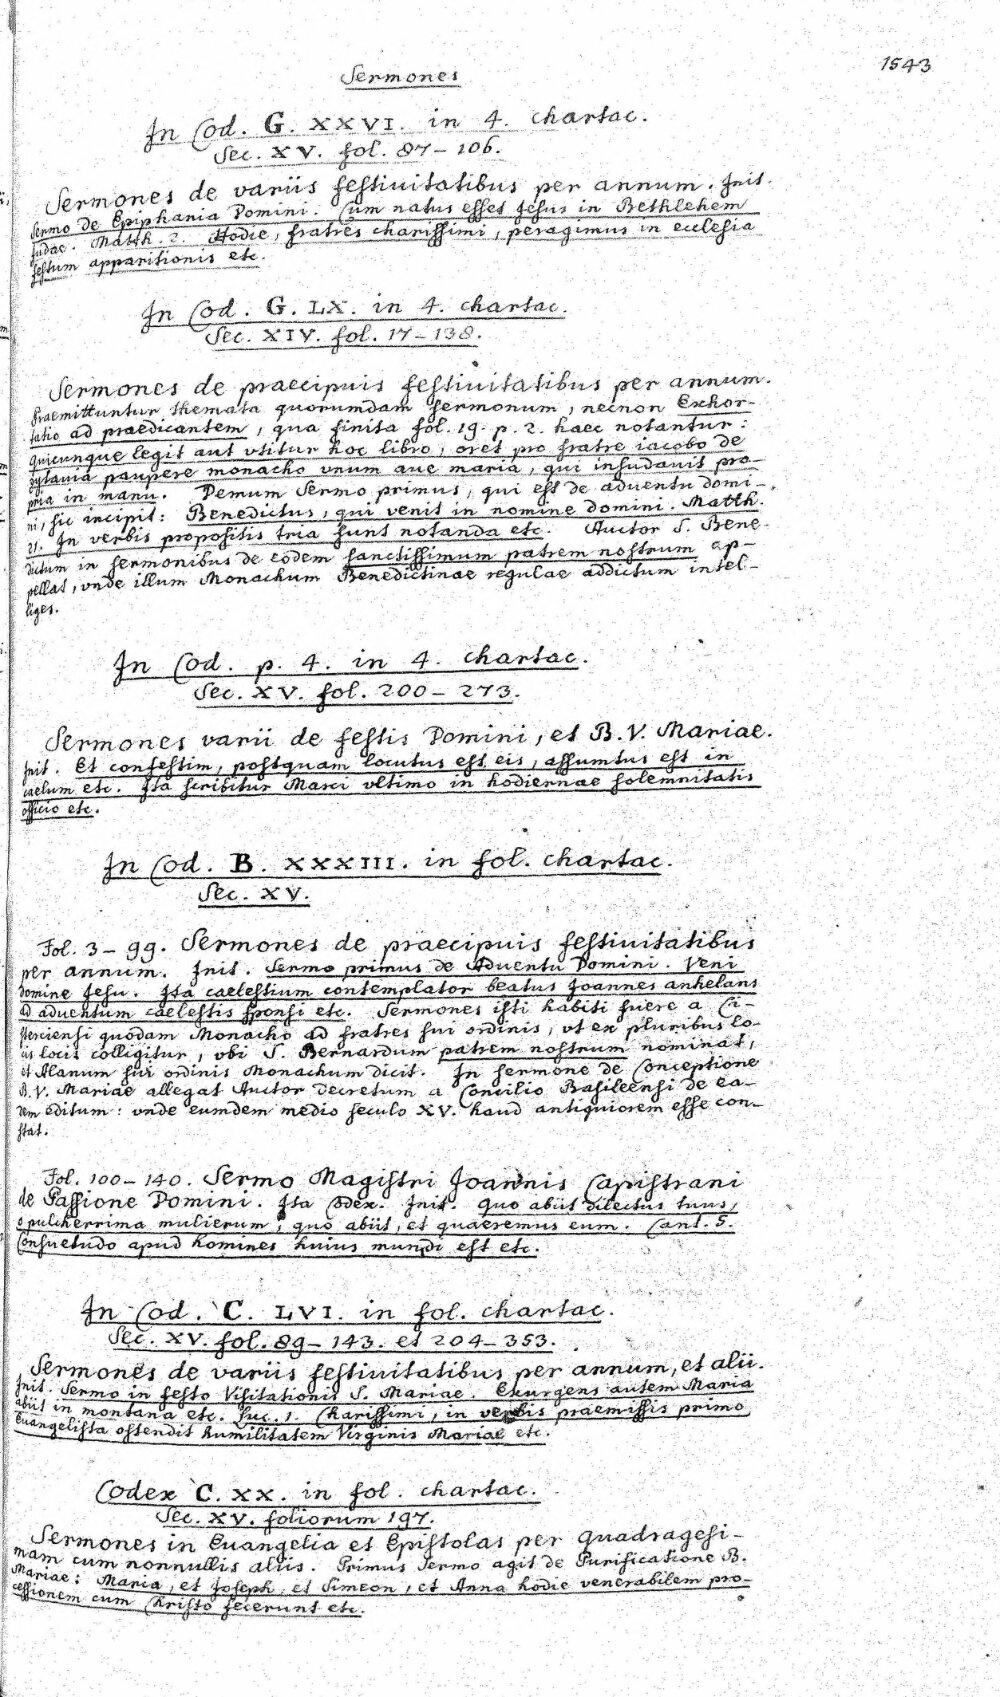 1543
Sermones
In Cod. G. XXVI. in 4. chartac.
Sec. XV. fol. 87-106.
Sermones de variis festiuitatibus per annum. Init.
Sermo de Epiphania Domini. Cum natus esset Jesus in Bethlehem
Judae. Matth. 2. Hodie, fratres charissimi, peragimus in ecclesia
festum apparitionis etc.
In Cod. G. LX. in 4. chartac.
Sec. XIV. fol. 17-138.
Sermones de praecipuis festiuitatibus per annum.
Praemittuntur themata quorumdam sermonum, necnon Exhor-
tatio ad praedicantem, qua finita fol. 19. p. 2. haec notantur:
Quicunque legit aut vtitur hoc libro, oret pro fratre iacobo de
paupere monacho vnum aue maria, qui insudauit pro-
pria in manu. Demum Sermo primus, qui est de aduentu domi-
ni, sic incipit: Benedictus, qui venit in nomine domini. Matth.
21. In verbis propositis tria sunt notanda etc. Auctor S. Bene-
dictum in sermonibus de eodem sanctissimum patrem nostrum ap-
pellat, vnde illum Monachum Benedictinae regulae addictum intel-
liges.
In Cod. p. 4. in 4. chartac.
Sec. XV. fol. 200-273.
Sermones varii de festis Domini, et B. V. Mariae.
Init. Et confestim, postquam locutus est eis, assumtus est in
caelum etc. Ita scribitur Marci vltimo in hodiernae solemnitatis
officio etc.
In Cod. B. XXXIII. in fol. chartac.
Sec. XV.
Fol. 3-99. Sermones de praecipuis festiuitatibus
per annum. Init. Sermo primus de Aduentu Domini. Veni
Domine Jesu. Ita caelestium contemplator beatus Joannes anhelans
ad aduentum caelestis sponsi etc. Sermones isti habiti fuere a Ci-
sterciensi quodam Monacho ad fratres sui ordinis, vt ex pluribus eo-
locis colligitur, vbi S. Bernardum patrem nostrum nominat,
et Alanum sui ordinis Monachum dicit. In sermone de Conceptione
B. V. Mariae allegat Auctor Decretum a Concilio Basileensi de ea-
dem editum: vnde eumdem medio seculo XV. haud antiquiorem esse con-
stat.
Fol. 100-140. Sermo Magistri Joannis Capistrani
de Passione Domini. Ita Codex. Init. Quo abiit dilectus tuus,
o pulcherrima mulierum, quo abiit, et quaeremus eum. Cant. 5.
Consuetudo apud homines huius mundi est etc.
In Cod. C. LVI. in fol. chartac.
Sec. XV. fol. 89-143. et 204-353.
Sermones de variis festiuitatibus per annum, et alii.
Init. Sermo in festo Visitationis S. Mariae. Exurgens autem Maria
abiit in montana etc. Luc. 1. Charissimi, in verbis praemissis primo
Euangelista ostendit humilitatem Virginis Mariae etc.
Codex C. XX. in fol. chartac.
Sec. XV. foliorum 197.
Sermones in Euangelia et Epistolas per Quadragesi-
mam cum nonnullis aliis. Primus Sermo agit de Purificatione B.
Mariae: Maria, et Joseph, et Simeon, et Anna hodie venerabilem pro-
cessionem cum Christo fecerunt etc.